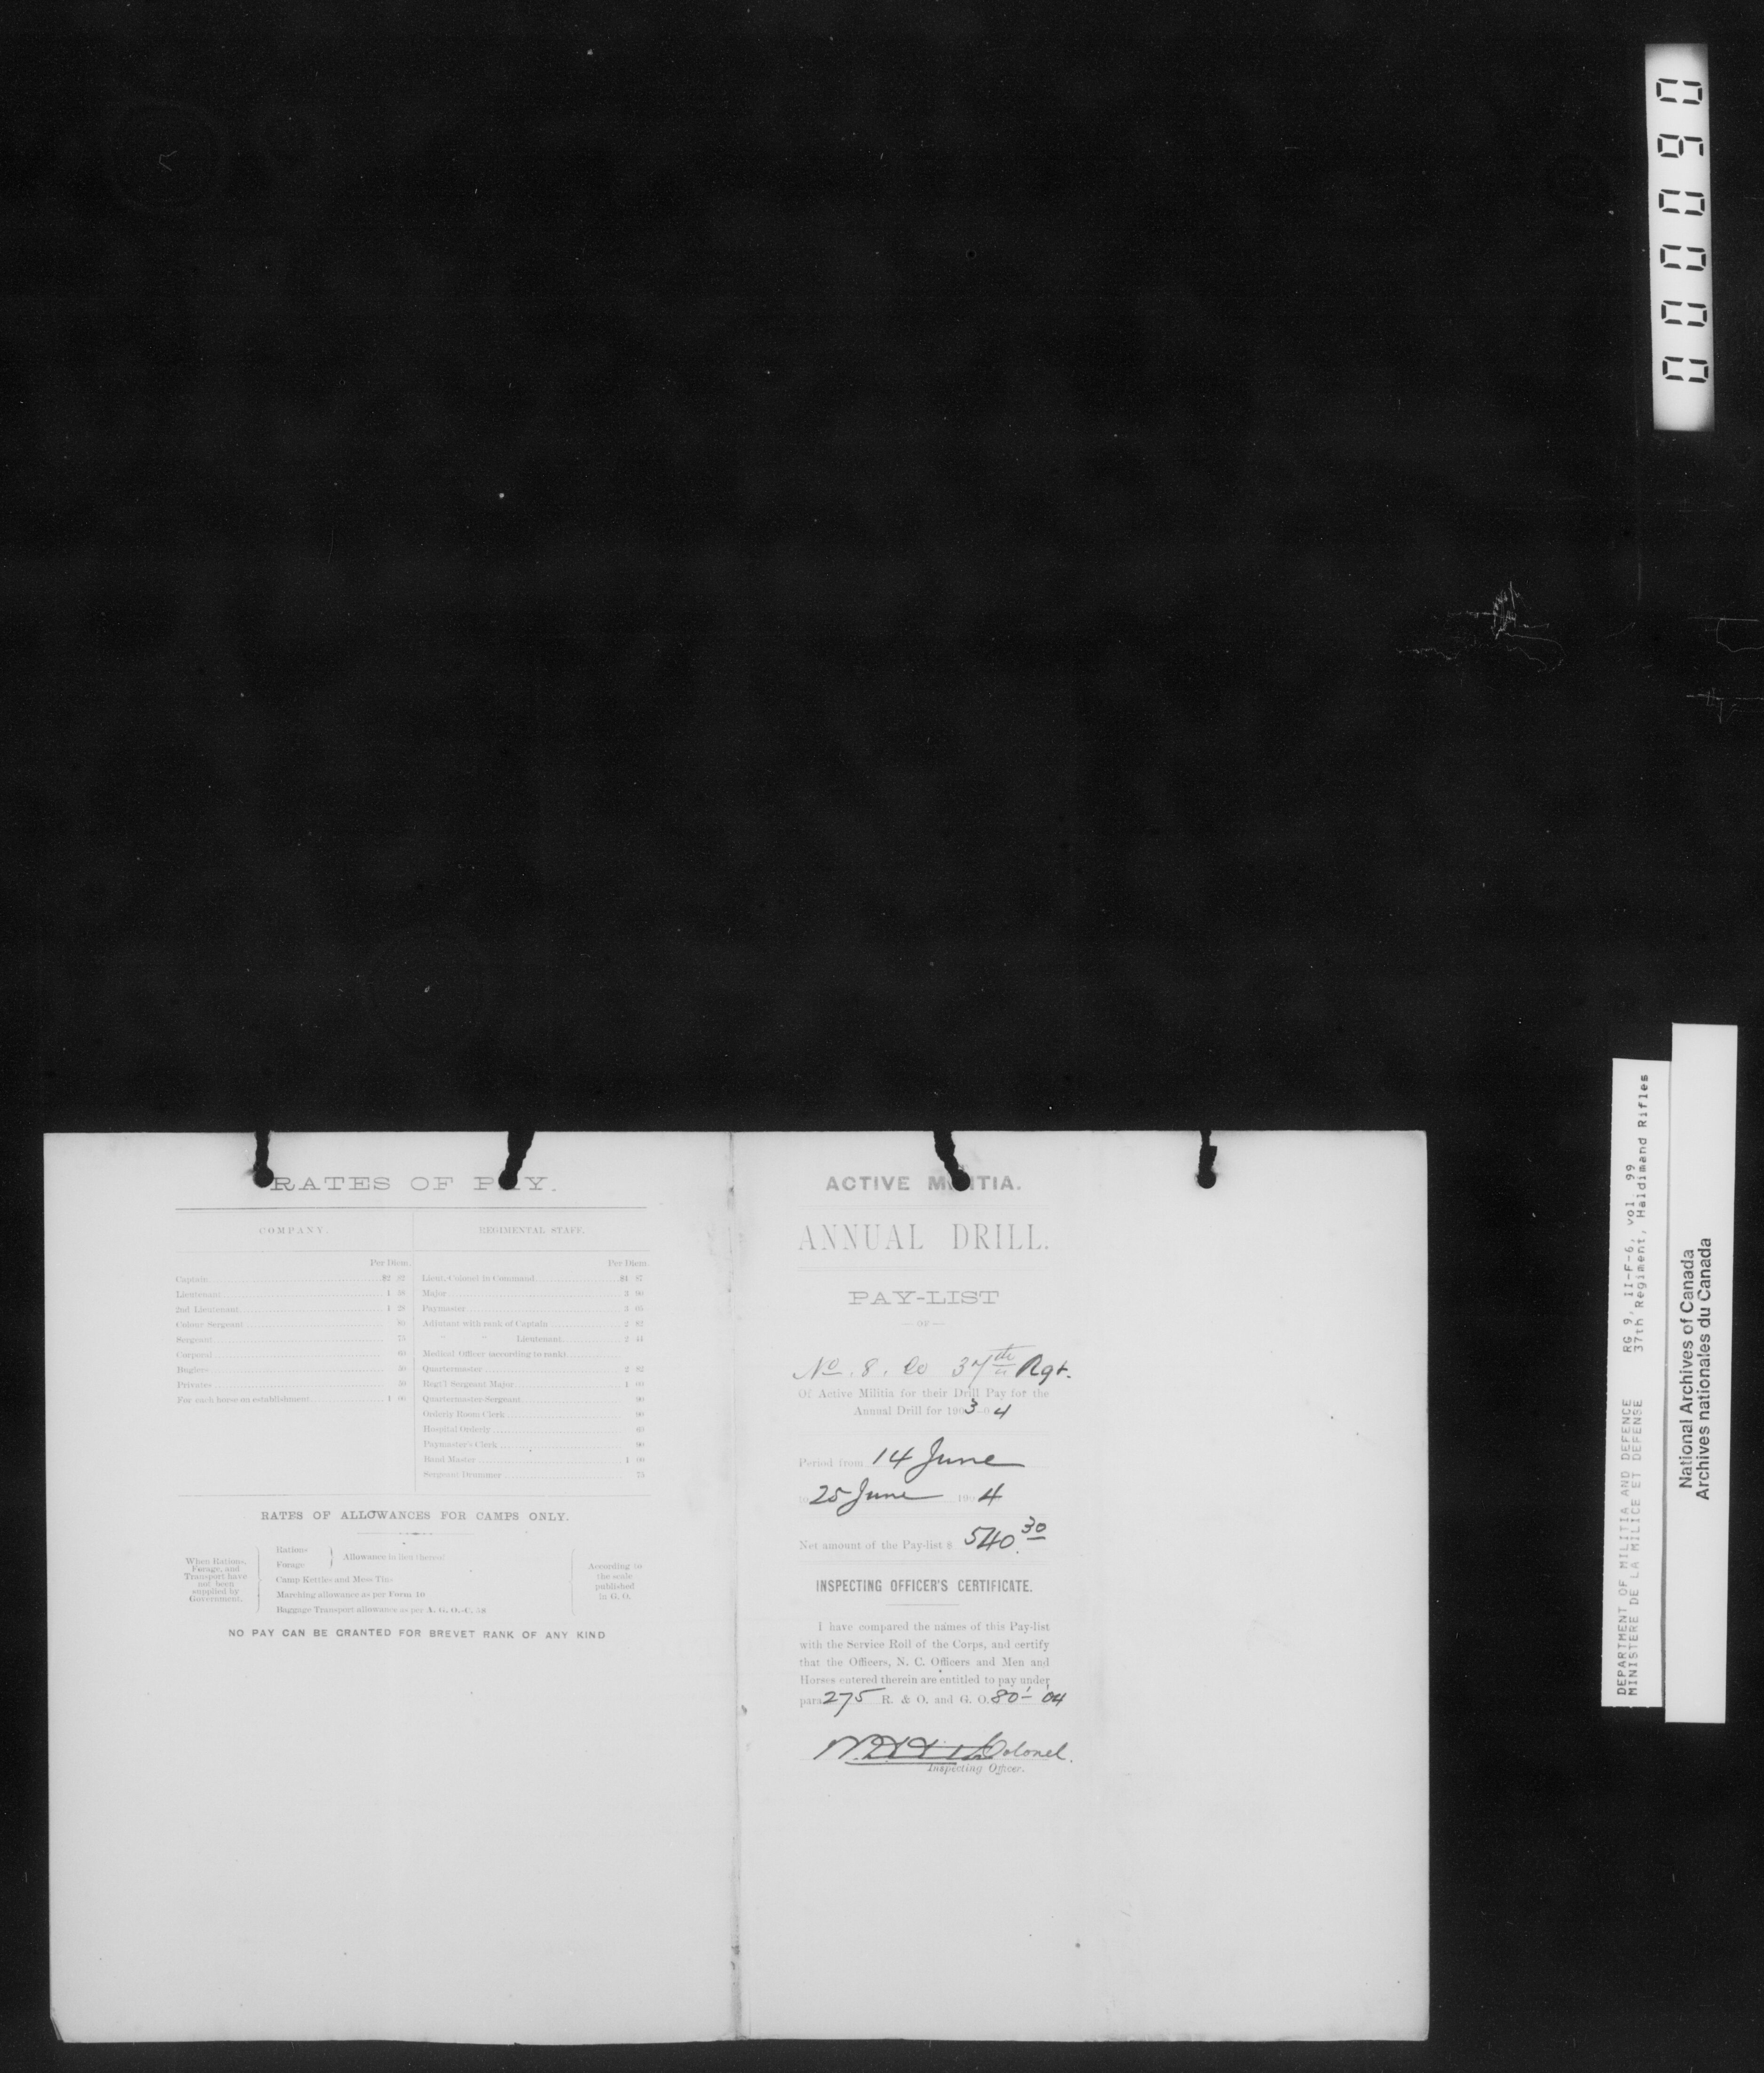 RATES OF PAY.
COMPANY.
Per Diem.
Captain $2 82
Lieutenant 1 58
2nd Lieutenant 1 28
Colour Sergeant 80
Sergeant 75
Corporal 60
Buglers 50
Privates 50
For each horse on establishment 1 00
REGIMENTAL STAFF.
Per Diem.
Lieut.-Colonel in Command $4 87
Major 3 90
Paymaster 3 05
Adjutant with rank of Captain 2 82
" " Lieutenant 2 44
Medical Officer (according to rank)
Quartermaster 2 82
Regt'l Sergeant Major 1 00
Quartermaster-Sergeant 90
Orderly Room Clerk 90
Hospital Orderly 60
Paymaster's Clerk 90
Band Master 1 00
Sergeant Drummer 75
RATES OF ALLOWANCES FOR CAMPS ONLY.
When Rations,
Forage, and
Transport have
not been
supplied by
Government.
Rations
Forage
Allowance in lieu thereof
Camp Kettles and Mess Tins
Marching allowance as per Form 10
Baggage Transport allowance as per A. G. O.-C. 58
According to
the scale
published
in G. O.
NO PAY CAN BE GRANTED FOR BREVET RANK OF ANY KIND
ACTIVE MILITIA.
ANNUAL DRILL.
PAY-LIST
— OF —
No. 8. Co 37th Rgt.
Of Active Militia for their Drill Pay for the
Annual Drill for 1903-04
Period from 14 June
to 25 June 1904
Net amount of the Pay-list $ 540.30
INSPECTING OFFICER'S CERTIFICATE.
I have compared the names of this Pay-list
with the Service Roll of the Corps, and certify
that the Officers, N. C. Officers and Men and
Horses entered therein are entitled to pay under
para 275 R. & O. and G. O. 80-'04
Colonel.
Inspecting Officer.
000060
DEPARTMENT OF MILITIA AND DEFENCE RG 9, II-F-6, vol. 99
MINISTERE DE LA MILICE ET DEFENSE 37th Regiment, Haldimand Rifles
National Archives of Canada
Archives nationales du Canada